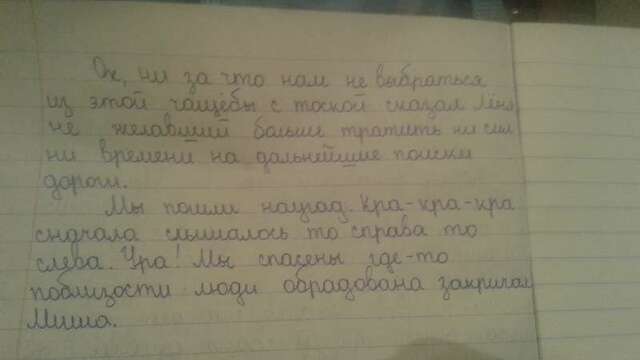 Ох, ни за что нам не выбраться
из этой чащёбы с тоской сказал Лёня
не желавший больше тратить ни сил
ни времени на дальнейшие поиски
дороги.
Мы пошли назад. Кра-кра-кра
сначала слышалось то справа то
слева. Ура! Мы спасены где-то
поблизости люди обрадована закричал
Миша.